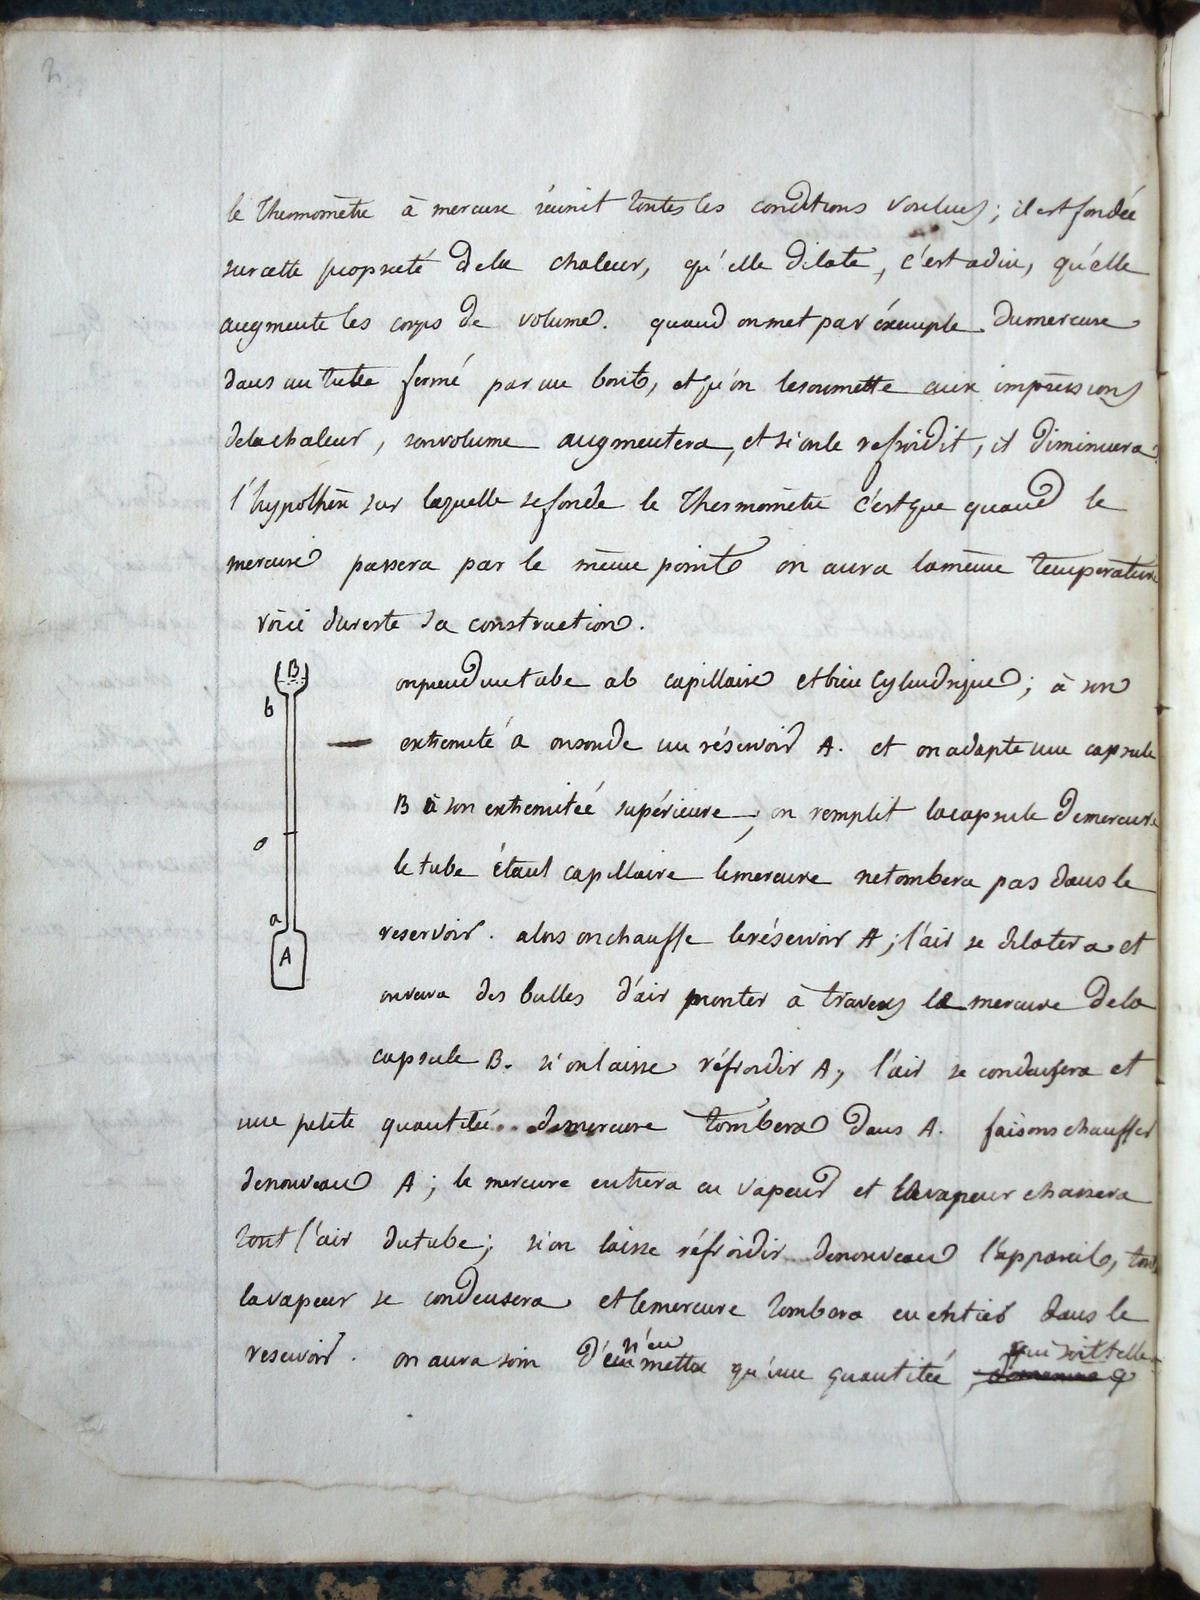 2.
le thermomètre à mercure réunit toutes les conditions voulues; il est fondée
sur cette propriété de la chaleur, qu'elle dilate, c'est adire, qu'elle
augmente les corps de volume. quand on met par éxemple du mercure
dans un tube fermé par un bout, et qu'on le soumette aux impressions
de la chaleur, son volume augmentera, et si on le refroidit, il diminuera.
l'hypothèse sur laquelle se fonde le thermomètre c'est que quand le
mercure passera par le même point on aura la même température
voici du reste sa construction.
on prend un tube ab capillaire et bien cylindrique; à son
extremité a on soude un réservoir A. et on adapte une capsule
B à son extremiteé supérieure; on remplit la capsule de mercure
le tube étant capillaire le mercure ne tombera pas dans le
reservoir. alors on chauffe le réservoir A; l'air se dilatera et
on verra des bulles d'air monter à travers le mercure de la
capsule B. si on laisse réfroidir A, l'air se condensera et
une petite quantitée de mercure tombera dans A. faisons chauffer
de nouveau A; le mercure entrera en vapeur et la vapeur chassera
tout l'air du tube; si on laisse réfroidir de nouveau l'appareil, toute
la vapeur se condensera et le mercure tombera en entier dans le
reservoir. on aura soin d'en n'en mettre qu'une quantitée, qui soit telle q
B
b
o
a
A